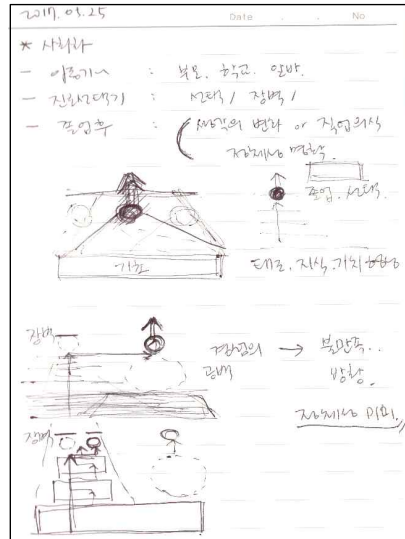 2017. 05. 25
Date . . No
* 사회화
- 이행기 : 부모. 학교. 알바.
- 진로선택기 : 선택 / 장벽 /
- 졸업후 : 생각의 변화 or 직업의식
정체성 명확
졸업. 선택
기준
태도. 지식. 가치
장벽
경험의 → 불만족..
공백 방황.
정체성 미확.
장벽